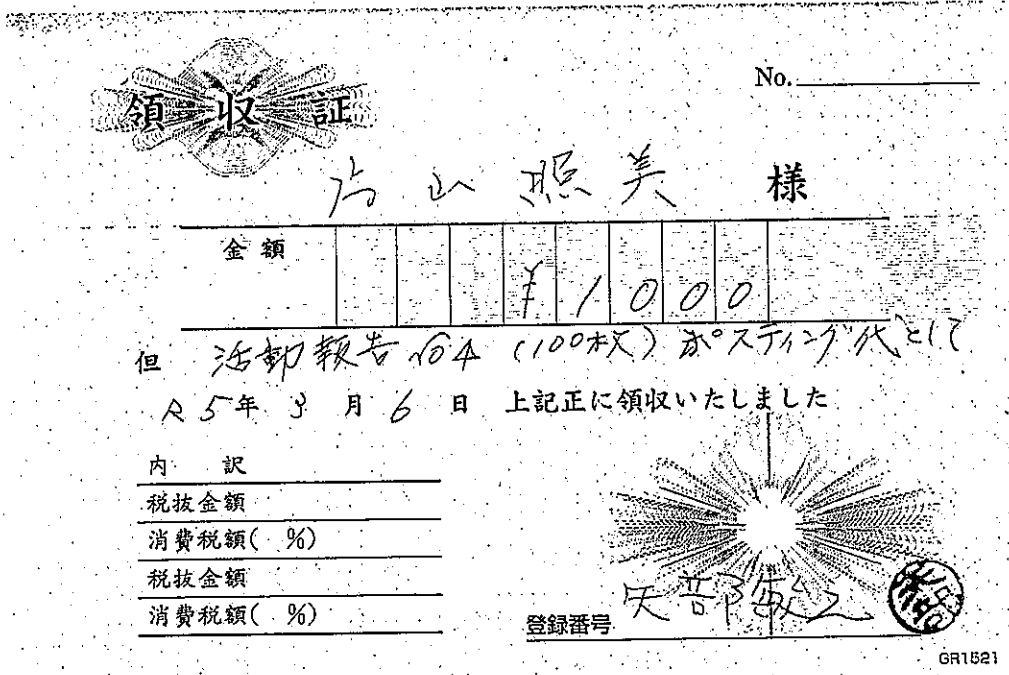 No.
領収証
片山照美 様
金額 ¥1000
但 活動報告 No4 (100枚) ポスティング代として
R5年 3月 6日 上記正に領収いたしました
内 訳
税抜金額
消費税額( %)
税抜金額
消費税額( %)
矢部敏之
登録番号
GR1521